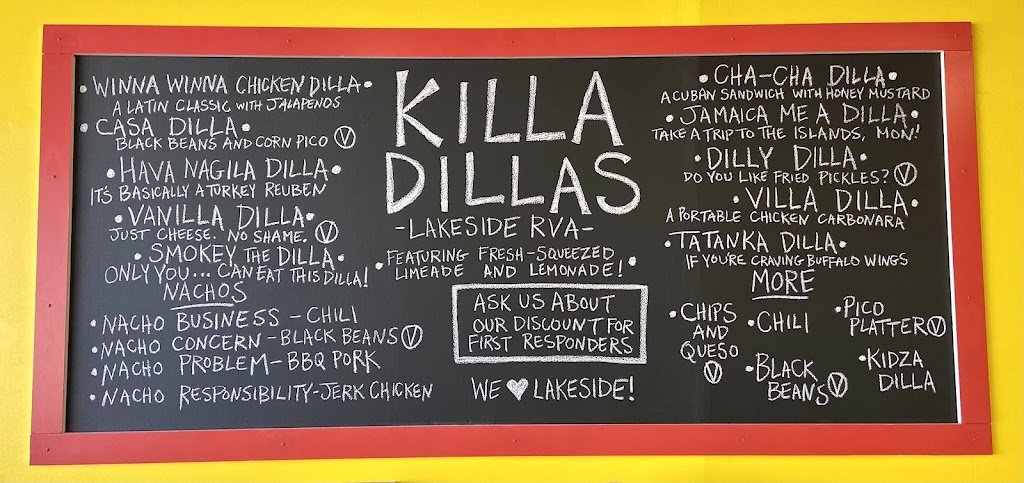 • WINNA WINNA CHICKEN DILLA •
A LATIN CLASSIC WITH JALAPENOS
• CASA DILLA •
BLACK BEANS AND CORN PICO Ⓥ
• HAVA NAGILA DILLA •
IT'S BASICALLY A TURKEY REUBEN
• VANILLA DILLA •
JUST CHEESE. NO SHAME. Ⓥ
• SMOKEY THE DILLA •
ONLY YOU... CAN EAT THIS DILLA!
NACHOS
• NACHO BUSINESS - CHILI
• NACHO CONCERN - BLACK BEANS Ⓥ
• NACHO PROBLEM - BBQ PORK
• NACHO RESPONSIBILITY - JERK CHICKEN
KILLA
DILLAS
- LAKESIDE RVA -
• FEATURING FRESH-SQUEEZED
LIMEADE AND LEMONADE! •
ASK US ABOUT
OUR DISCOUNT FOR
FIRST RESPONDERS
WE ♥ LAKESIDE!
• CHA-CHA DILLA •
A CUBAN SANDWICH WITH HONEY MUSTARD
• JAMAICA ME A DILLA •
TAKE A TRIP TO THE ISLANDS, MON!
• DILLY DILLA •
DO YOU LIKE FRIED PICKLES? Ⓥ
• VILLA DILLA •
A PORTABLE CHICKEN CARBONARA
• TATANKA DILLA •
IF YOU'RE CRAVING BUFFALO WINGS
MORE
• CHIPS
AND
QUESO
Ⓥ
• CHILI
• BLACK
BEANS Ⓥ
• PICO
PLATTER Ⓥ
• KIDZA
DILLA